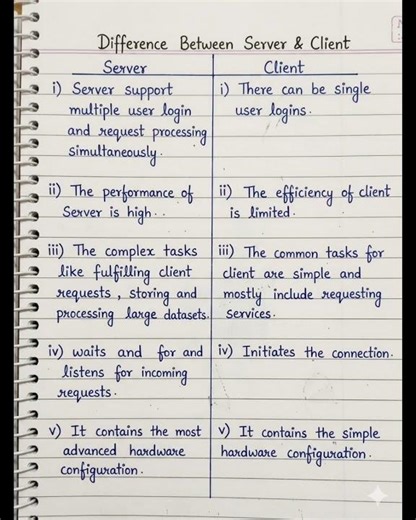 Difference Between Server & Client
Server
i) Server support
multiple user login
and request processing
simultaneously.
ii) The performance of
Server is high..
iii) The complex tasks
like fulfilling client
requests, storing and
processing large datasets.
iv) waits and for and
listens for incoming
requests.
v) It contains the most
advanced hardware
configuration.
Client
i) There can be single
user logins.
ii) The efficiency of client
is limited.
iii) The common tasks for
client are simple and
mostly include requesting
services.
iv) Initiates the connection.
v) It contains the simple
hardware configuration.